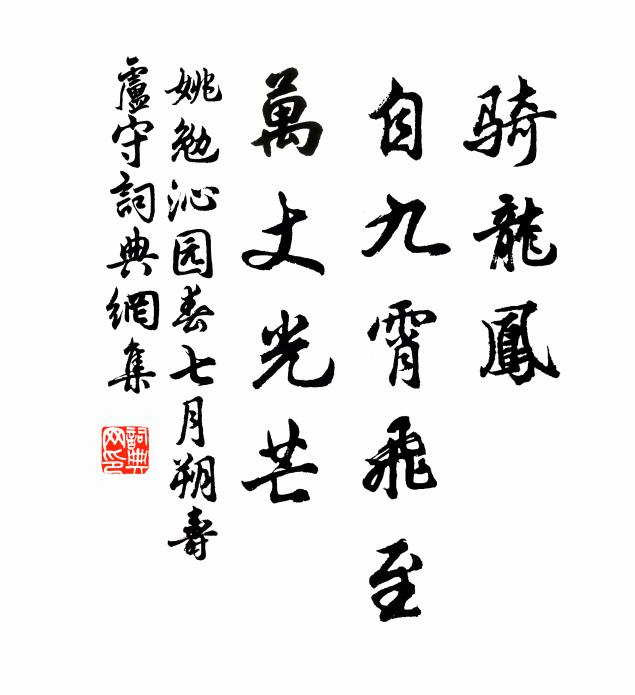 骑龍鳳
自九霄飛至
萬丈光芒
姚勉沁园春七月朔壽
盧守詞典網集
詞典网印